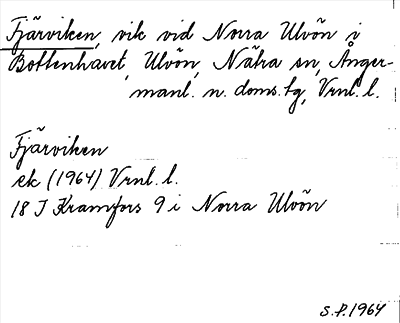 Fjärviken, vik vid Norra Ulvön i
Bottenhavet, Ulvön, Nätra sn, Ånger-
manl. n. doms.tg, Vrnl. l.
Fjärviken
ek (1964) Vrnl. l.
18 J Kramfors 9 i Norra Ulvön
S.P. 1964